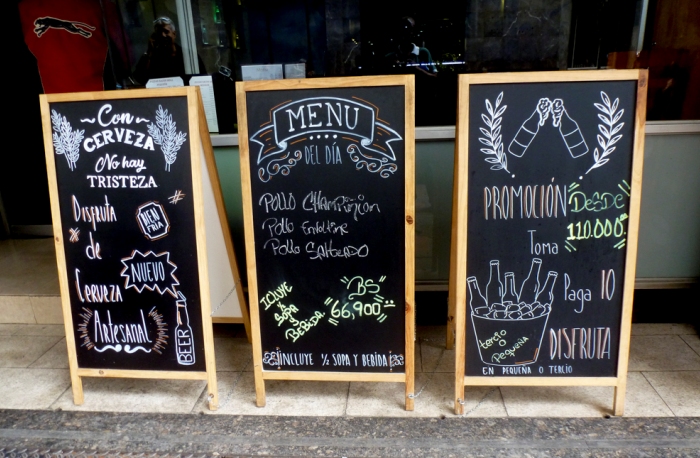 Con
CERVEZA
No hay
TRISTEZA
Disfruta
#
BIEN
FRIA
#
de
NUEVO
Cerveza
Artesanal
BEER
MENU
DEL DÍA
POLLO CHAMPIÑON
Pollo
Pollo SALTEADO
INCLUYE
½ SOPA
y
BEBIDA
BS
66,900
INCLUYE ½ SOPA Y BEBIDA
PROMOCIÓN DESDE
110.000
Toma
Paga 10
tercio o
Pequeña
DISFRUTA
EN PEQUEÑA O TERCIO